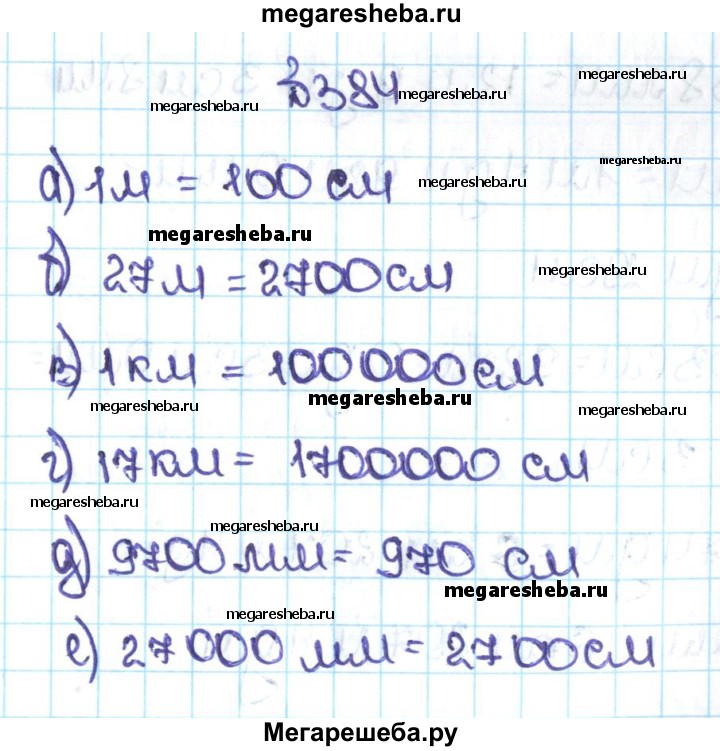 megaresheba.ru
№384
megaresheba.ru
megaresheba.ru
megaresheba.ru
а) 1м = 100 см
megaresheba.ru
megaresheba.ru
megaresheba.ru
б) 27м = 2700см
megaresheba.ru
в) 1км = 100000см
megaresheba.ru
megaresheba.ru
megaresheba.ru
г) 17км = 1700000 см
megaresheba.ru
megaresheba.ru
д) 9700мм = 970 см
megaresheba.ru
megaresheba.ru
е) 27000 мм = 2700см
Мегарешеба.ру